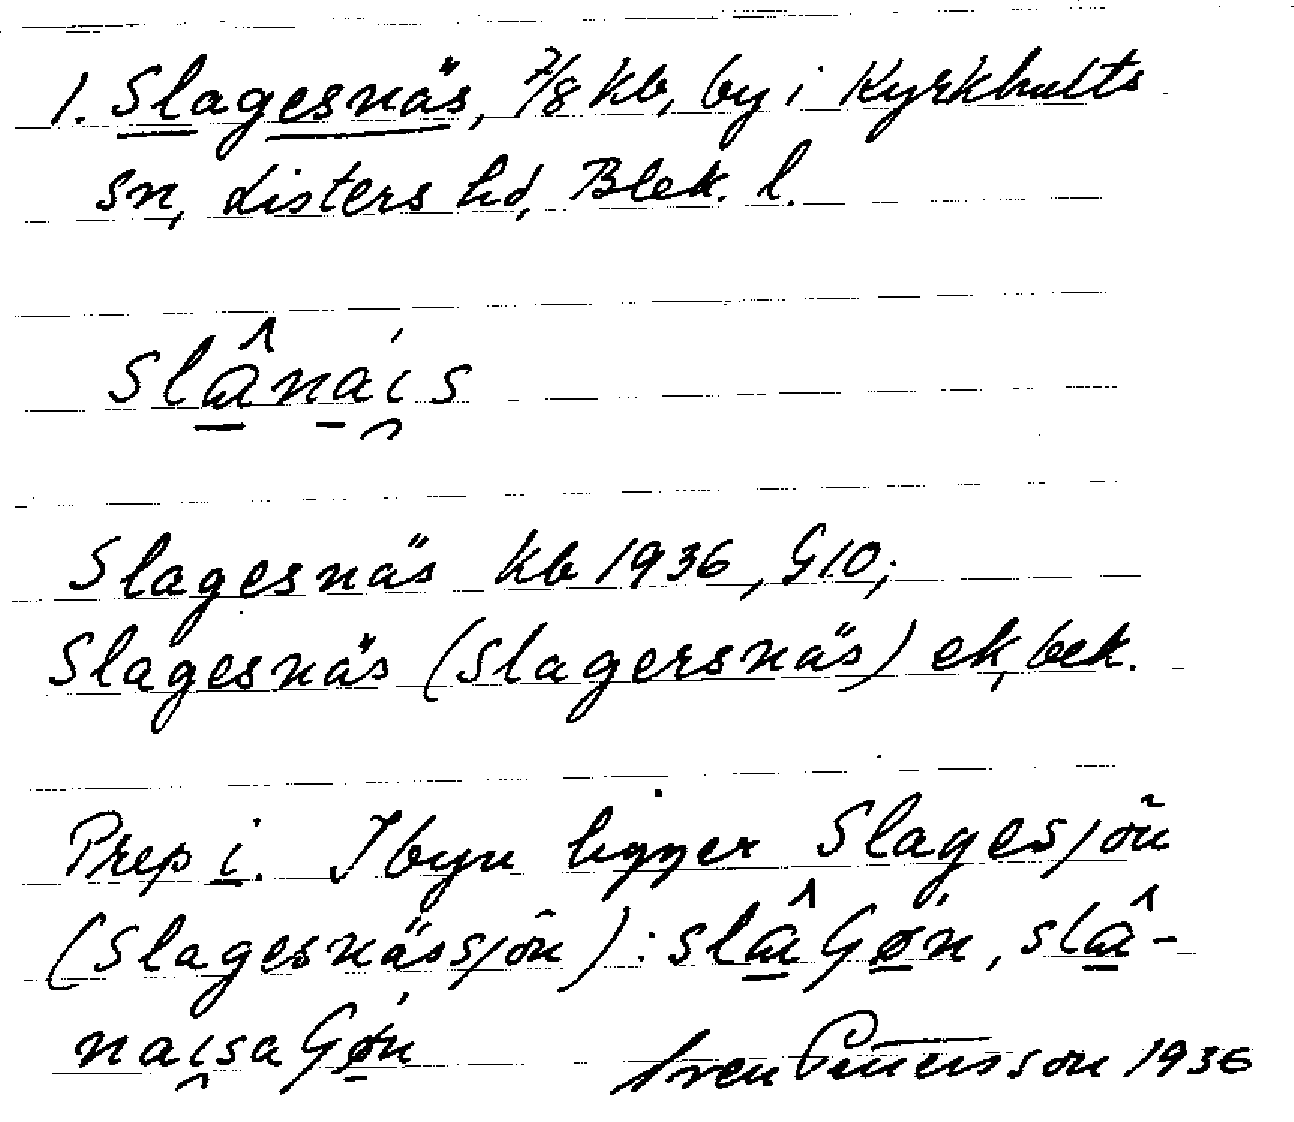 1. Slagesnäs, 7/8 kb, by i Kyrkhults
sn, Listers hd, Blek. l.
Slânais
Slagesnäs kb 1936, G10;
Slagesnäs (Slagersnäs) ek, bek.
Prep i. I byn ligger Slagesjön
(Slagesnässjön): slâGøn, slâ-
naisaGøn
Sven Pettersson 1936